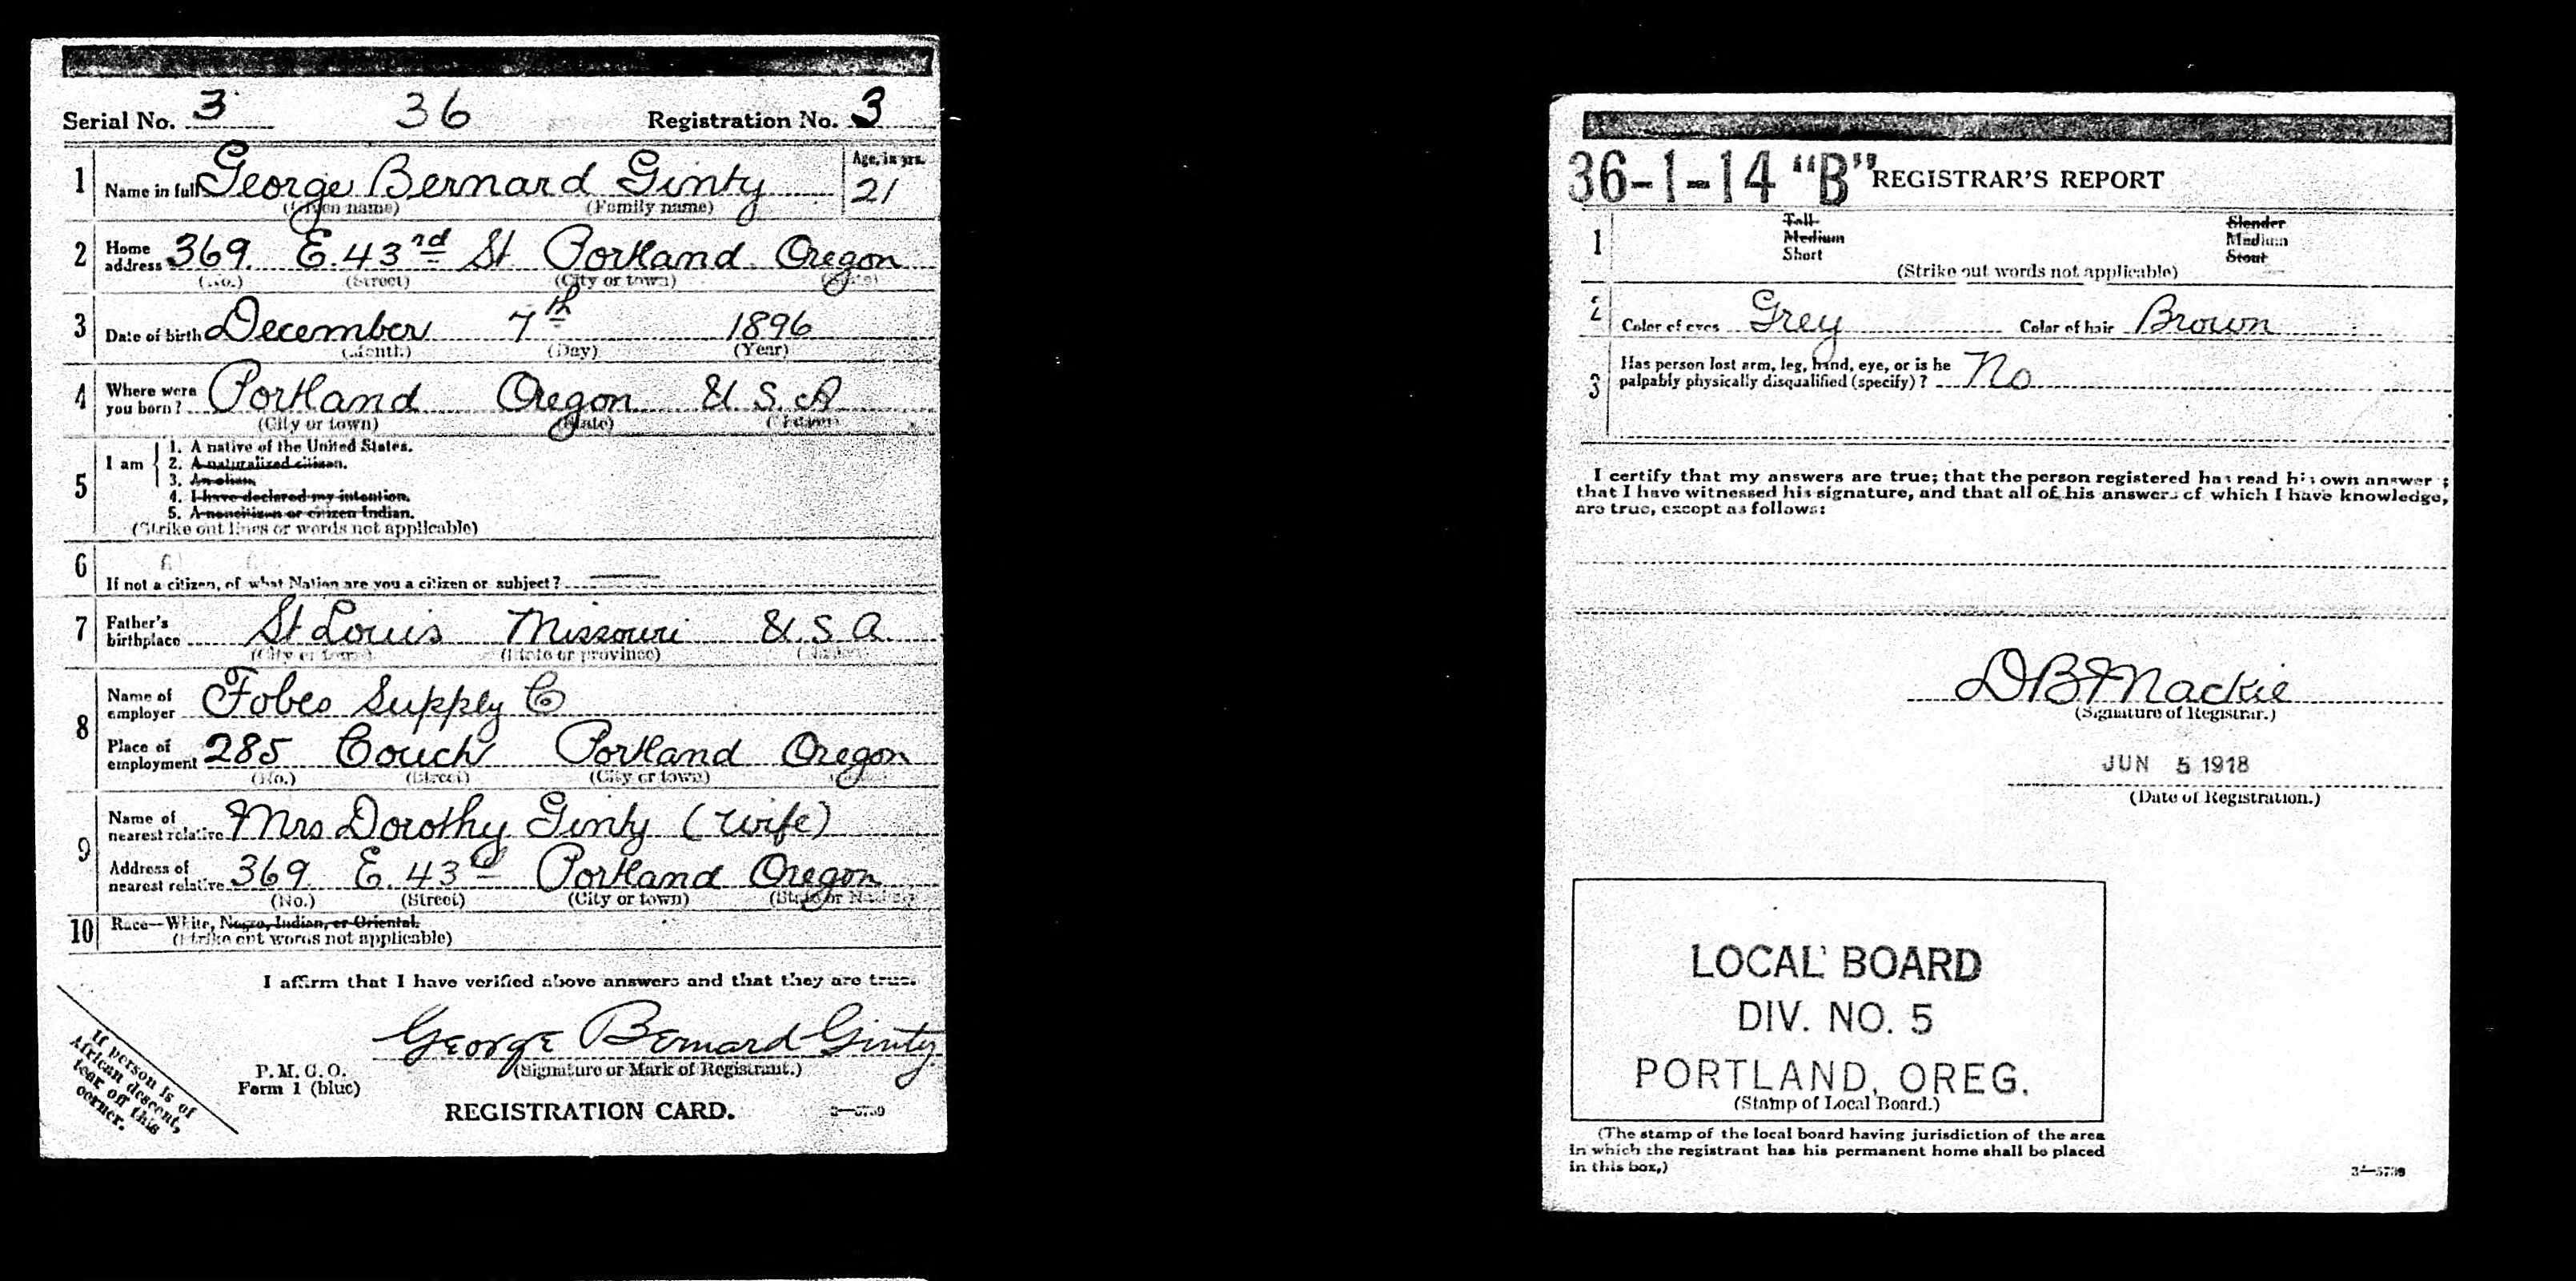 Serial No. 3 36 Registration No. 3
1 Name in full George Bernard Ginty Age, in yrs. 21
(Given name) (Family name)
2 Home address 369 E. 43rd St Portland Oregon
(No.) (Street) (City or town) (State)
3 Date of birth December 7th 1896
(Month) (Day) (Year)
4 Where were you born? Portland Oregon U. S. A
(City or town) (State)
5 I am 1. A native of the United States.
2. A naturalized citizen.
3. An alien.
4. I have declared my intention.
5. A noncitizen or citizen Indian.
(Strike out lines or words not applicable)
6 If not a citizen, of what Nation are you a citizen or subject?
7 Father's birthplace St Louis Missouri U. S A
(City or town) (State or province)
8 Name of employer Fobes Supply Co
Place of employment 285 Couch Portland Oregon
(No.) (Street) (City or town)
9 Name of nearest relative Mrs Dorothy Ginty (wife)
Address of nearest relative 369 E. 43rd Portland Oregon
(No.) (Street) (City or town) (State or Nation)
10 Race—White, Negro, Indian, or Oriental.
(Strike out words not applicable)
I affirm that I have verified above answers and that they are true.
George Bernard Ginty
(Signature or Mark of Registrant.)
P. M. G. O.
Form 1 (blue)
REGISTRATION CARD. 3—5739
If person is of
African descent,
tear off this
corner.
36-1-14 "B" REGISTRAR'S REPORT
1 Tall Slender
Medium Medium
Short Stout
(Strike out words not applicable)
2 Color of eyes Grey Color of hair Brown
3 Has person lost arm, leg, hand, eye, or is he
palpably physically disqualified (specify)? No
I certify that my answers are true; that the person registered has read his own answers;
that I have witnessed his signature, and that all of his answers of which I have knowledge,
are true, except as follows:
D B Mackie
(Signature of Registrar.)
JUN 5 1918
(Date of Registration.)
LOCAL BOARD
DIV. NO. 5
PORTLAND, OREG.
(Stamp of Local Board.)
(The stamp of the local board having jurisdiction of the area
in which the registrant has his permanent home shall be placed
in this box.)
3—5739